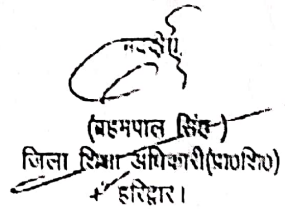 भवदीय,
(ब्रहमपाल सिंह)
जिला शिक्षा अधिकारी(प्रा०शि०)
हरिद्वार।